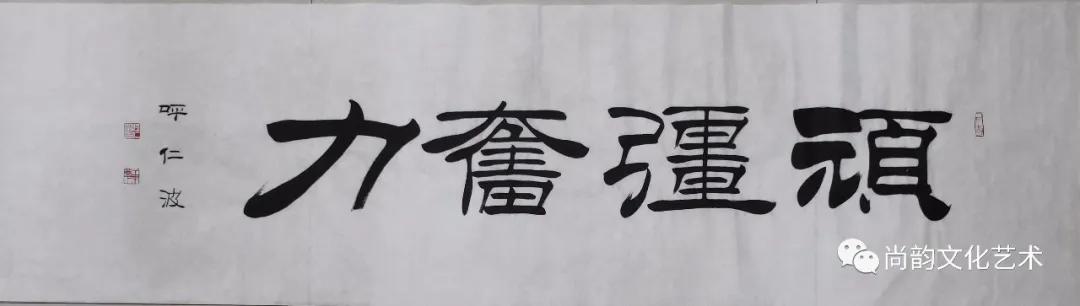 頑彊奮力
呼仁波
尚韵文化艺术